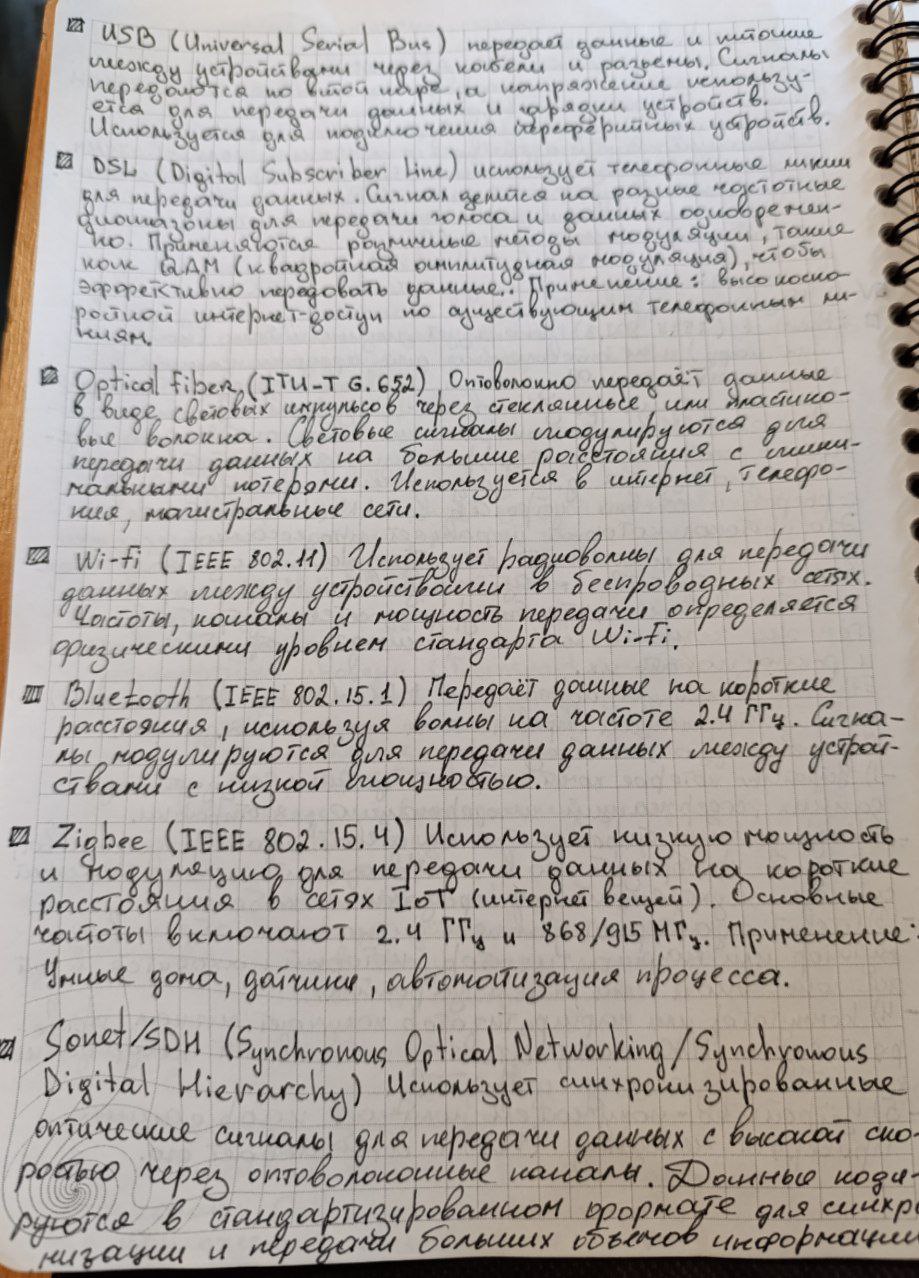 USB (Universal Serial Bus) передаёт данные и питание
между устройствами через кабели и разъёмы. Сигналы
передаются по витой паре, а напряжение использу-
ется для передачи данных и зарядки устройств.
Используется для подключения переферийных устройств.
DSL (Digital Subscriber Line) использует телефонные линии
для передачи данных. Сигнал делится на разные частотные
диапазоны для передачи голоса и данных одновремен-
но. Применяются различные методы модуляции, такие
как QAM (квадратная амплитудная модуляция), чтобы
эффективно передавать данные. Применение: высокоско-
ростной интернет-доступ по существующим телефонным ли-
ниям.
Optical fiber (ITU-T G.652) Оптоволокно передаёт данные
в виде световых импульсов через стеклянные или пластико-
вые волокна. Световые сигналы модулируются для
передачи данных на большие расстояния с мини-
мальными потерями. Используется в интернет, телефо-
ния, магистральные сети.
Wi-fi (IEEE 802.11) Использует радиоволны для передачи
данных между устройствами в беспроводных сетях.
Частоты, каналы и мощность передачи определяется
физическими уровнем стандарта Wi-Fi.
Bluetooth (IEEE 802.15.1) Передаёт данные на короткие
расстояния, используя волны на частоте 2.4 ГГц. Сигна-
лы модулируются для передачи данных между устрой-
ствами с низкой мощностью.
Zigbee (IEEE 802.15.4) Использует низкую мощность
и модуляцию для передачи данных на короткие
расстояния в сетях IoT (интернет вещей). Основные
частоты включают 2.4 ГГц и 868/915 МГц. Применение:
Умные дома, датчики, автоматизация процесса.
Sonet/SDH (Synchronous Optical Networking/Synchronous
Digital Hierarchy) Использует синхронизированные
оптические сигналы для передачи данных с высокой ско-
ростью через оптоволоконные каналы. Данные коди-
руются в стандартизированном формате для синхро
низации и передачи больших объёмов информации